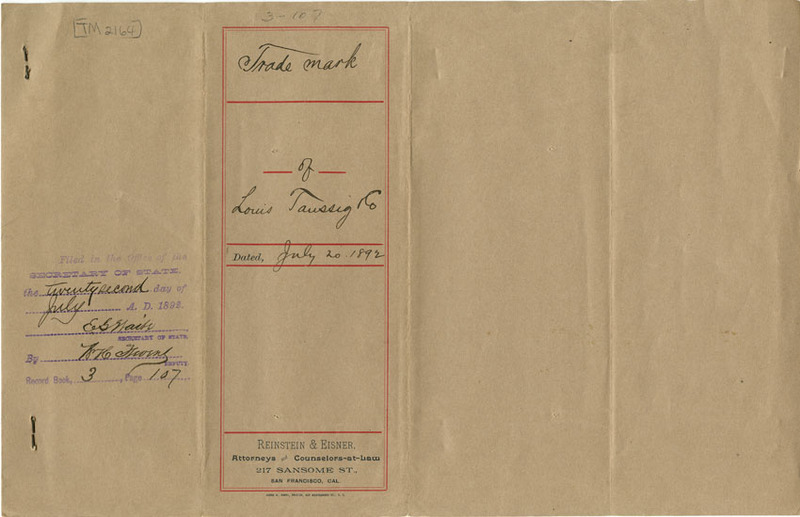 TM 2164
3-107
Trade mark
of
Louis Taussig & Co
Dated, July 20 1892
Filed in the Office of the
SECRETARY OF STATE.
the twenty second day of
July A. D. 1892.
E G Waite
SECRETARY OF STATE
By
DEPUTY
Record Book, 3, Page 107
REINSTEIN & EISNER,
Attorneys and Counselors-at-Law
217 SANSOME ST.,
SAN FRANCISCO, CAL.